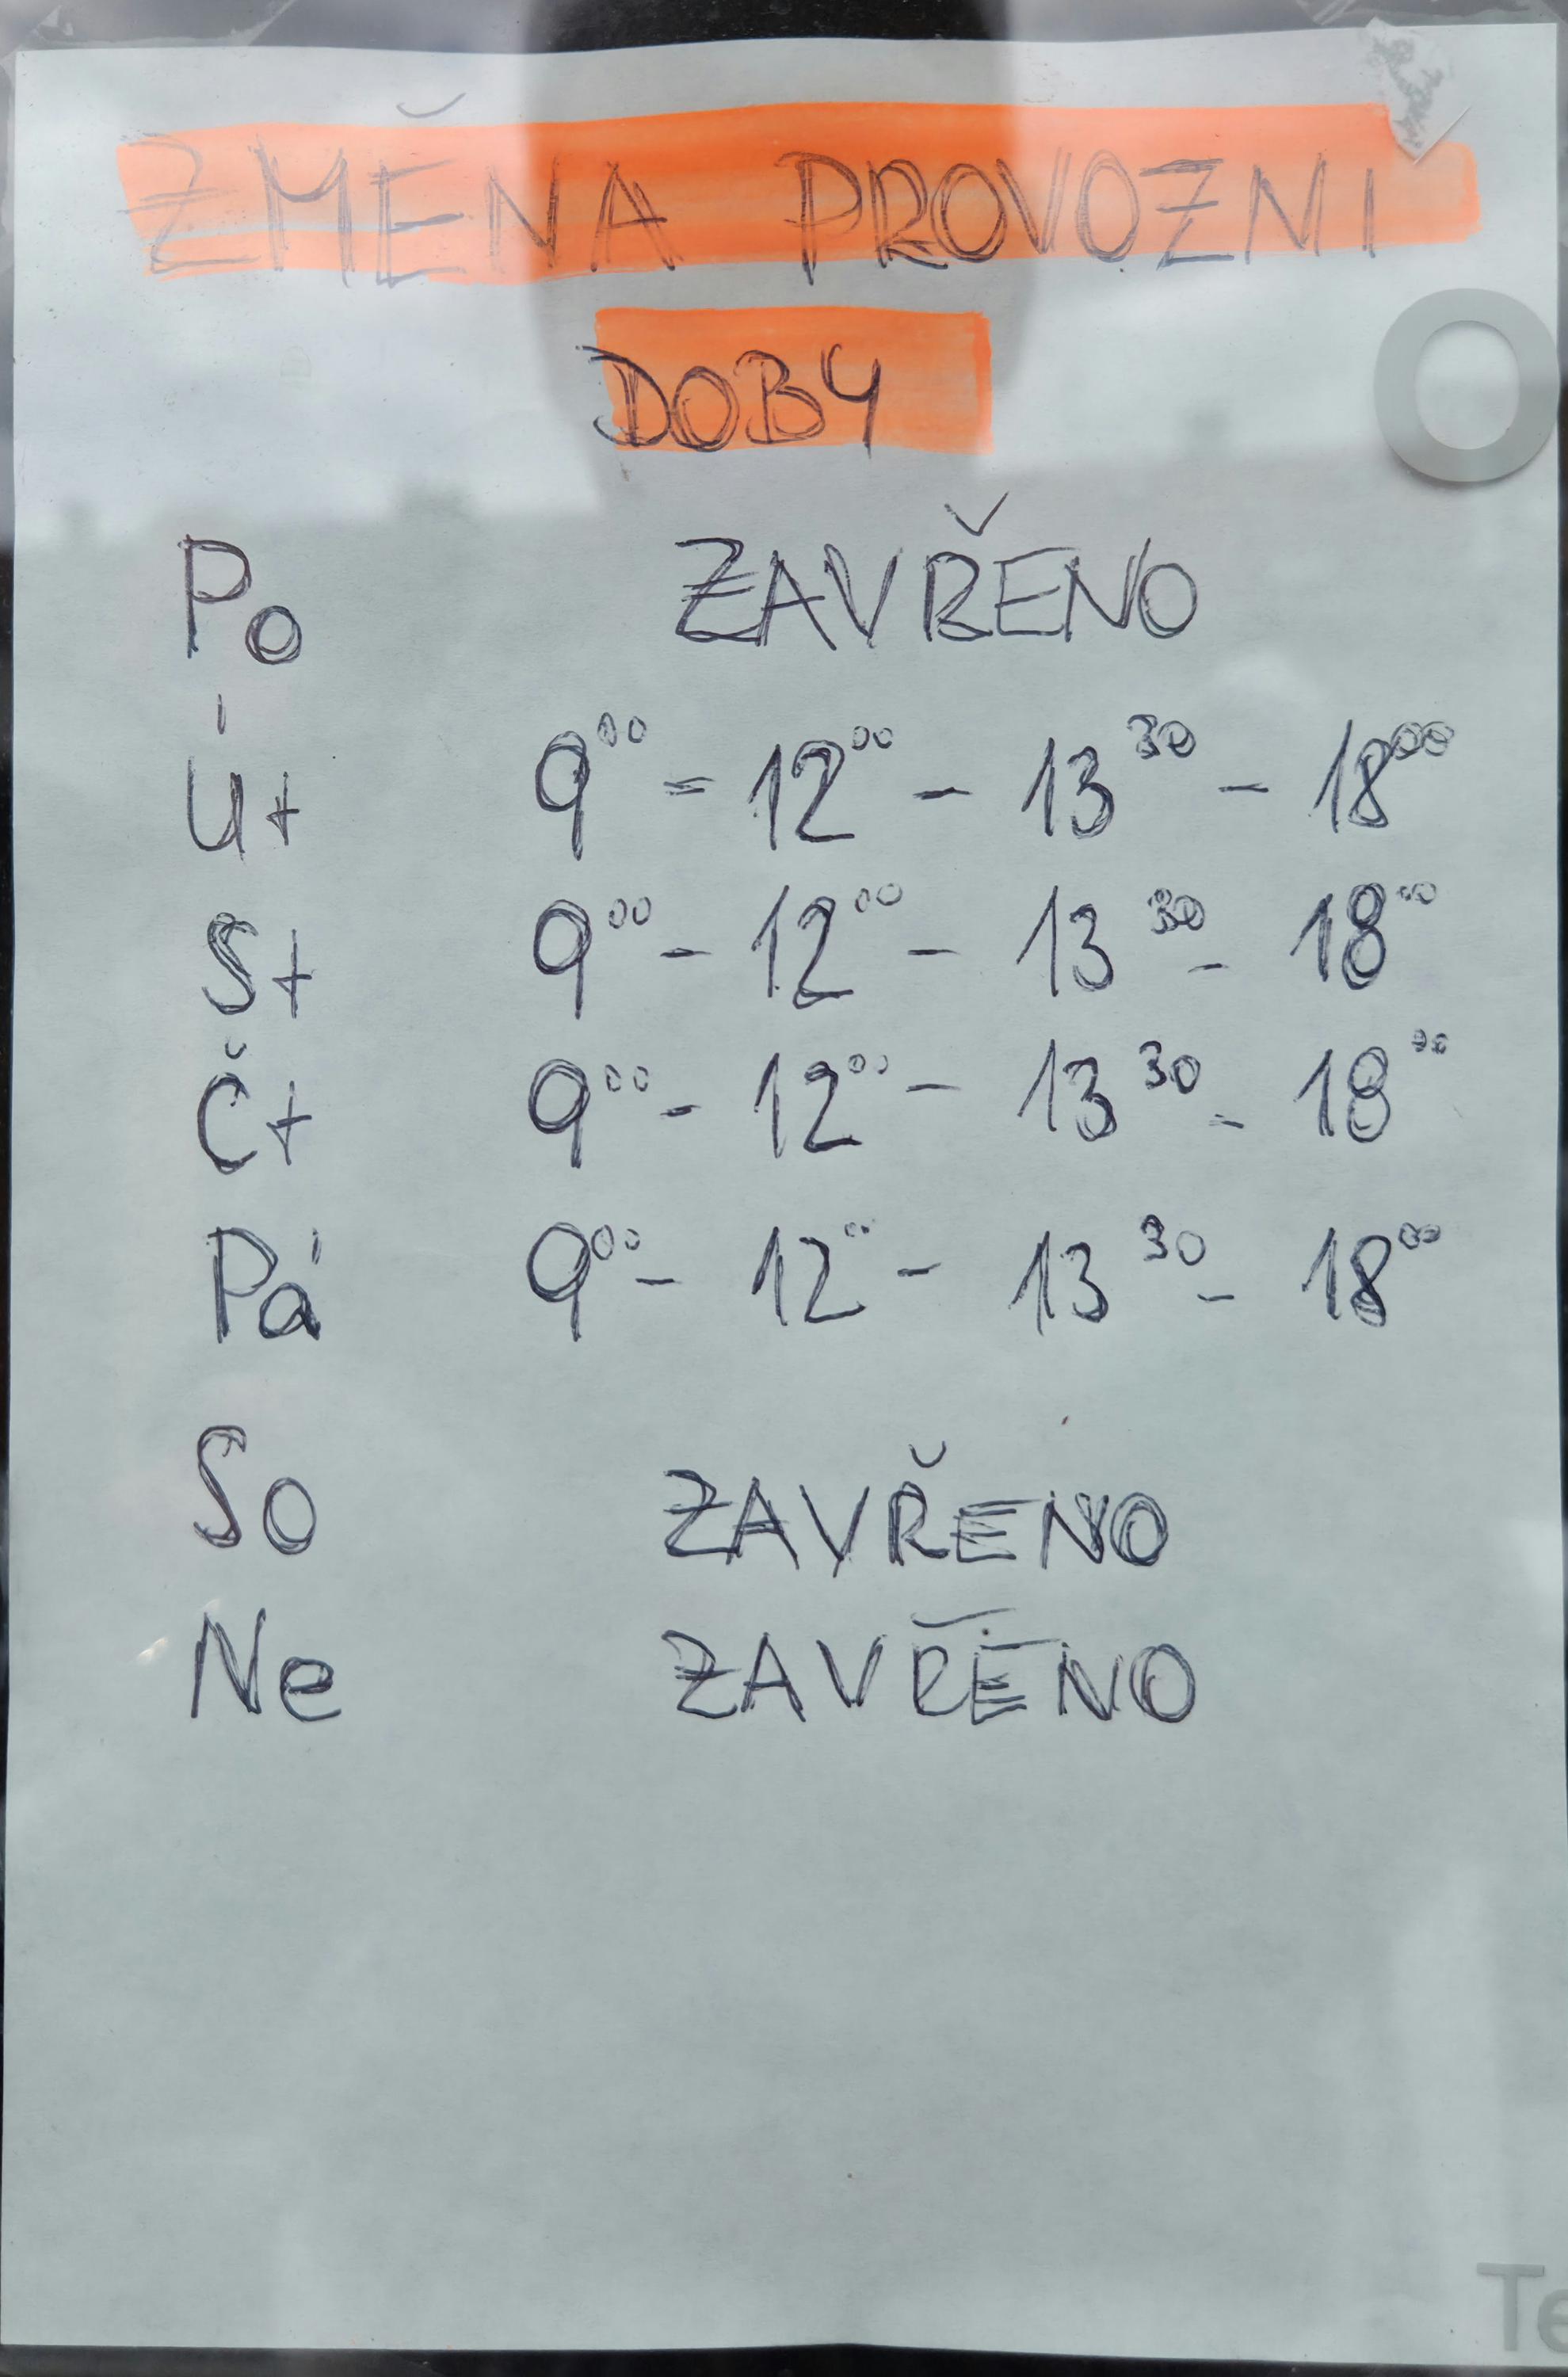 ZMĚNA PROVOZNI
DOBY
O
Po ZAVŘENO
Út 9⁰⁰ - 12⁰⁰ - 13³⁰ - 18⁰⁰
St 9⁰⁰ - 12⁰⁰ - 13³⁰ - 18⁰⁰
Čt 9⁰⁰ - 12⁰⁰ - 13³⁰ - 18⁰⁰
Pá 9⁰⁰ - 12⁰⁰ - 13³⁰ - 18⁰⁰
So ZAVŘENO
Ne ZAVŘENO
Te